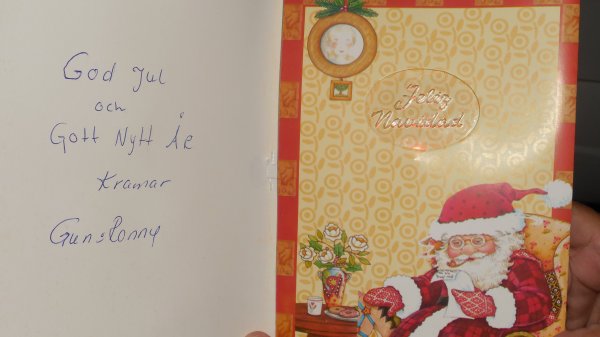 God Jul
och
Gott Nytt År
Kramar
Gun & Conny
Feliz
Navidad